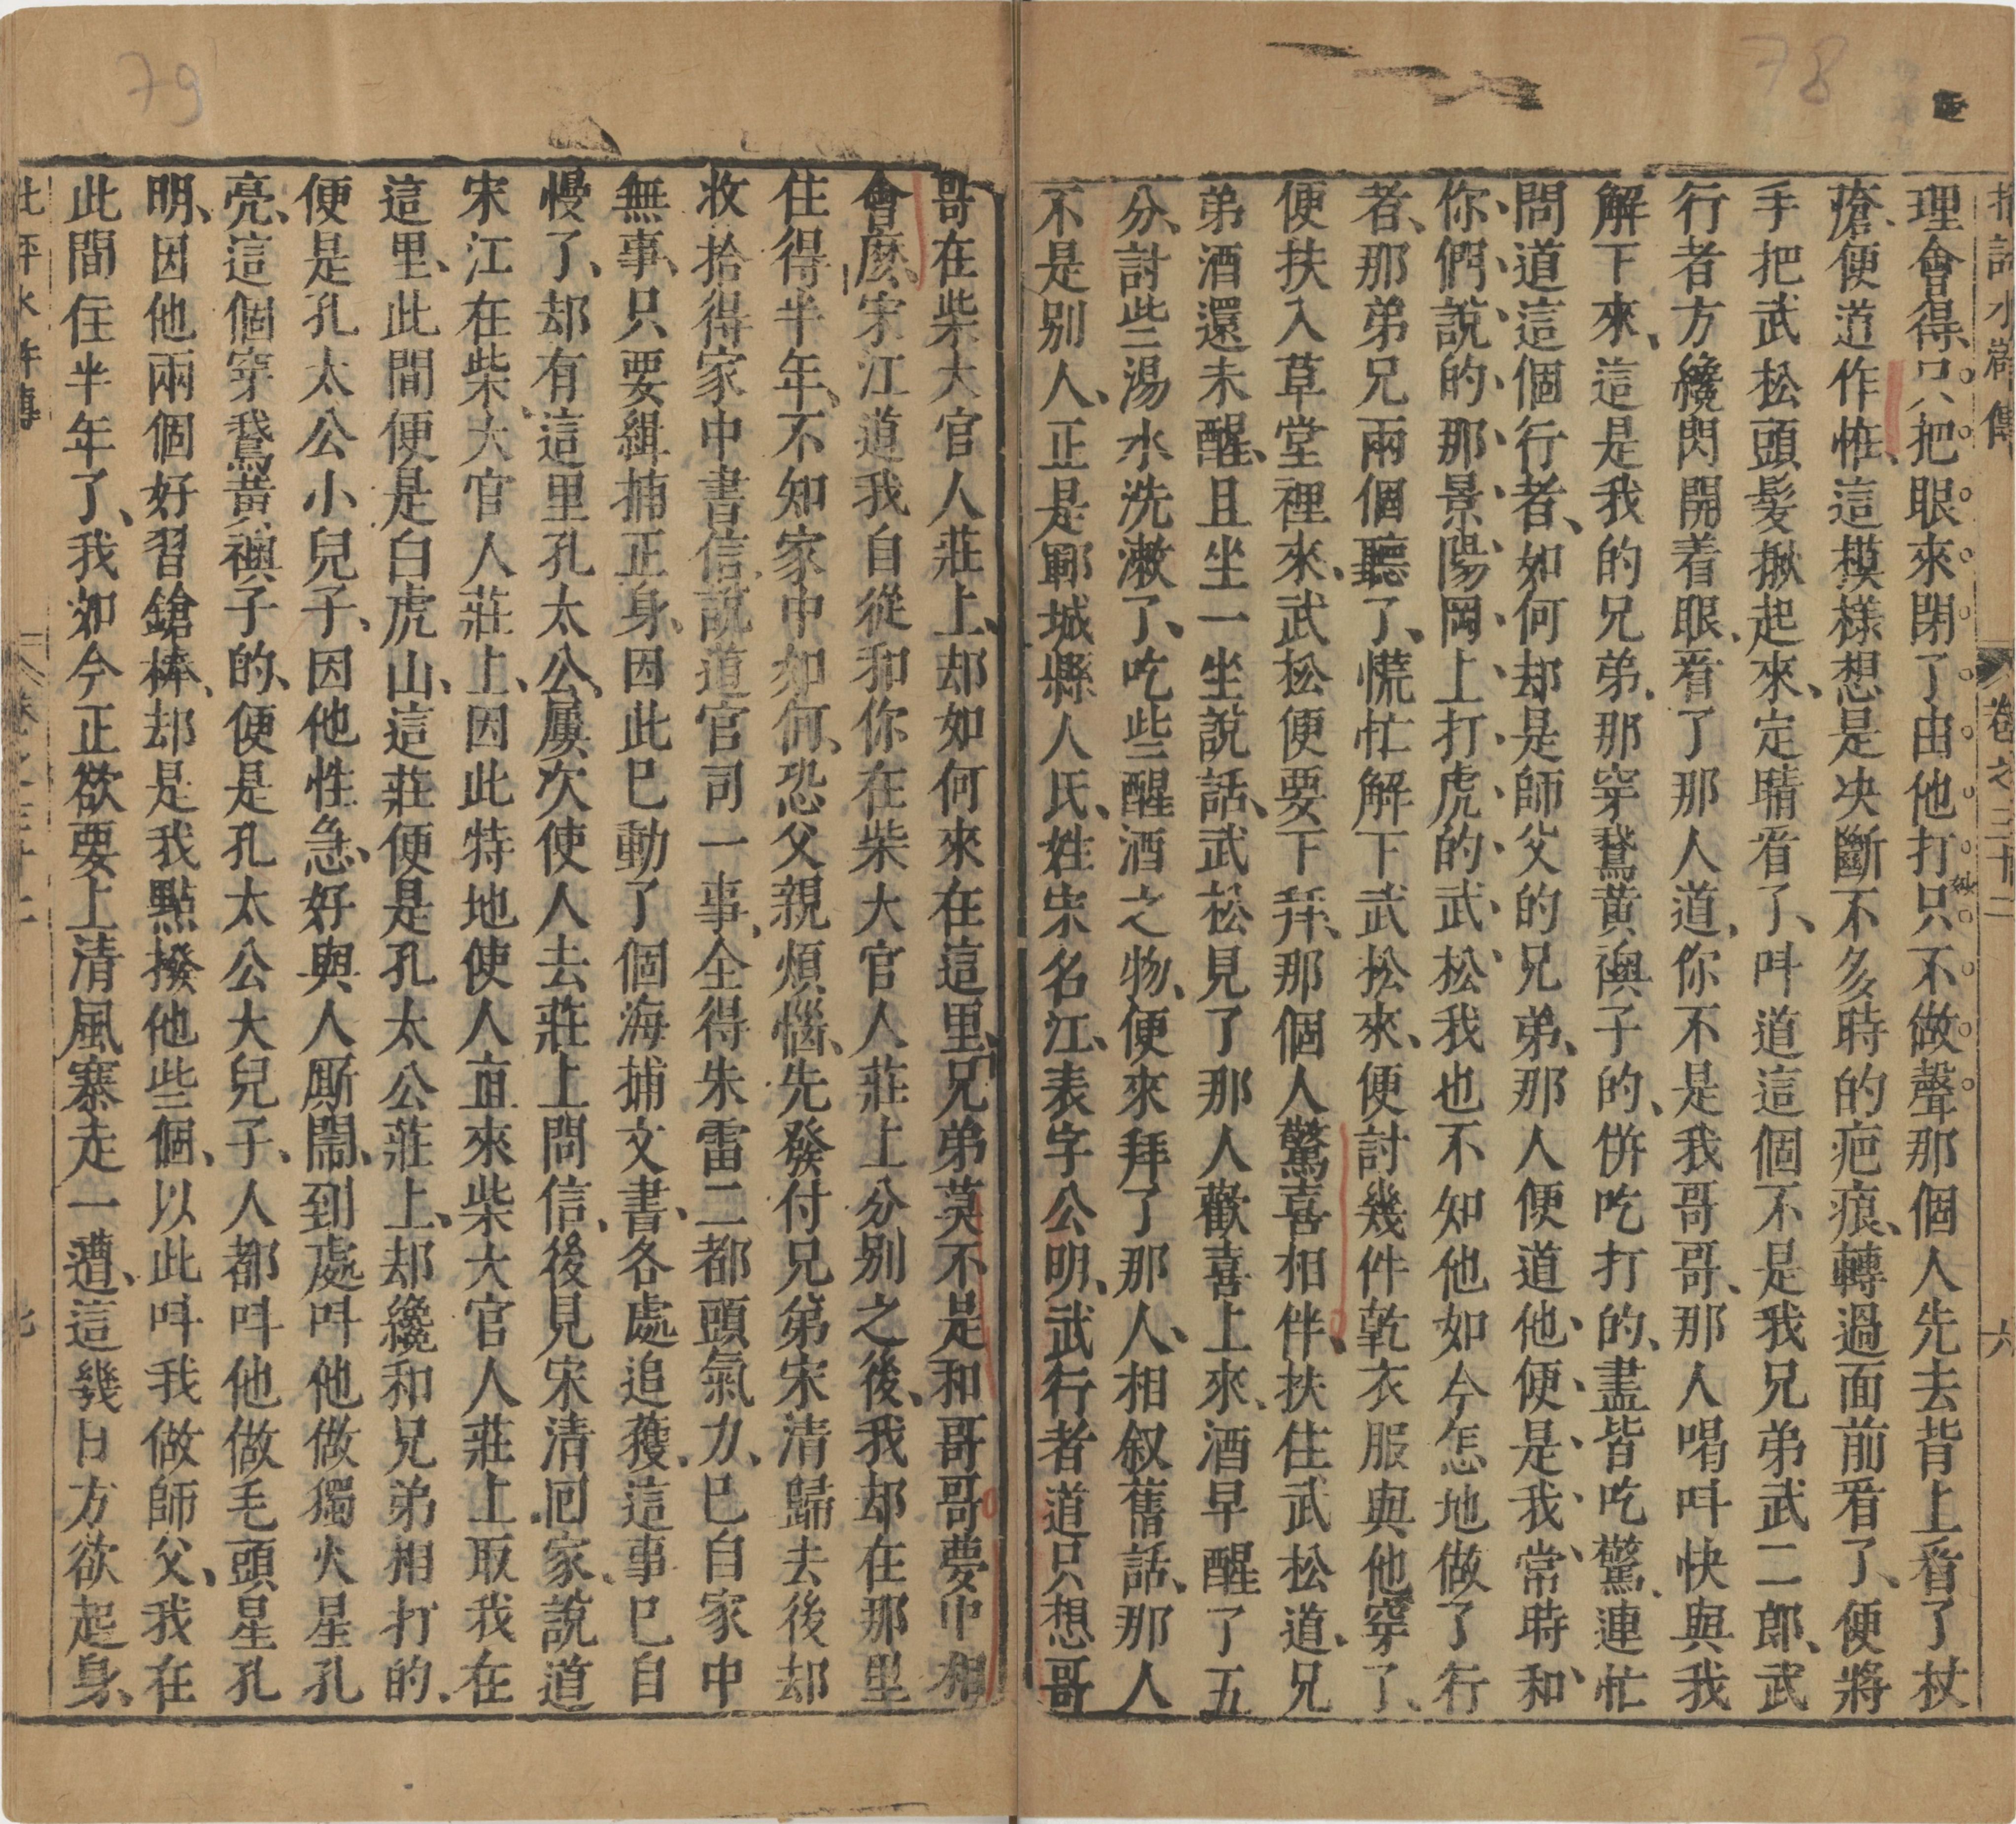 78
理會得、只把眼來閉了由他打只不做聲那個人先去背上看了杖
瘡、便道作怪、這模樣想是决斷不多時的疤痕、轉過面前看了、便將
手把武松頭髮揪起來、定睛看了、呌道這個不是我兄弟武二郎、武
行者方纔閃開着眼、看了那人道、你不是我哥哥、那人喝呌快與我
解下來、這是我的兄弟、那穿鵞黄襖子的、併吃打的、盡皆吃驚、連忙
問道這個行者、如何却是師父的兄弟、那人便道他、便是我常時和
你們說的那景陽岡上打虎的武松我也不知他如今怎地做了行
者、那弟兄兩個聽了、慌忙解下武松來、便討幾件乾衣服與他穿了、
便扶入草堂裡來、武松便要下拜、那個人驚喜相伴、扶住武松道、兄
弟酒還未醒、且坐一坐說話、武松見了那人歡喜上來、酒早醒了五
分、討些湯水洗漱了、吃些醒酒之物、便來拜了那人、相叙舊話、那人
不是别人、正是鄆城縣人氏、姓宋名江、表字公明、武行者道只想哥
卷之三十二
六
79
哥在柴大官人莊上、却如何來在這里、兄弟莫不是和哥哥夢中相
會麽、宋江道我自從和你在柴大官人莊上分别之後、我却在那里
住得半年、不知家中如何、恐父親煩惱、先發付兄弟宋清歸去後却
收拾得家中書信說道官司一事、全得朱雷二都頭氣力、已自家中
無事、只要緝捕正身、因此已動了個海捕文書、各處追獲、這事已自
慢了、却有這里孔太公、屢次使人去莊上問信、後見宋清回家、說道
宋江在柴大官人莊上、因此特地使人直來柴大官人莊上取我在
這里、此間便是白虎山、這莊便是孔太公莊上、却纔和兄弟相打的、
便是孔太公小兒子、因他性急、好與人厮鬧、到處呌他做獨火星孔
亮、這個穿鵞黄襖子的、便是孔太公大兒子、人都呌他做毛頭星孔
明、因他兩個好習鎗棒、却是我點撥他些個、以此呌我做師父、我在
此間住半年了、我如今正欲要上清風寨走一遭、這幾日方欲起身、